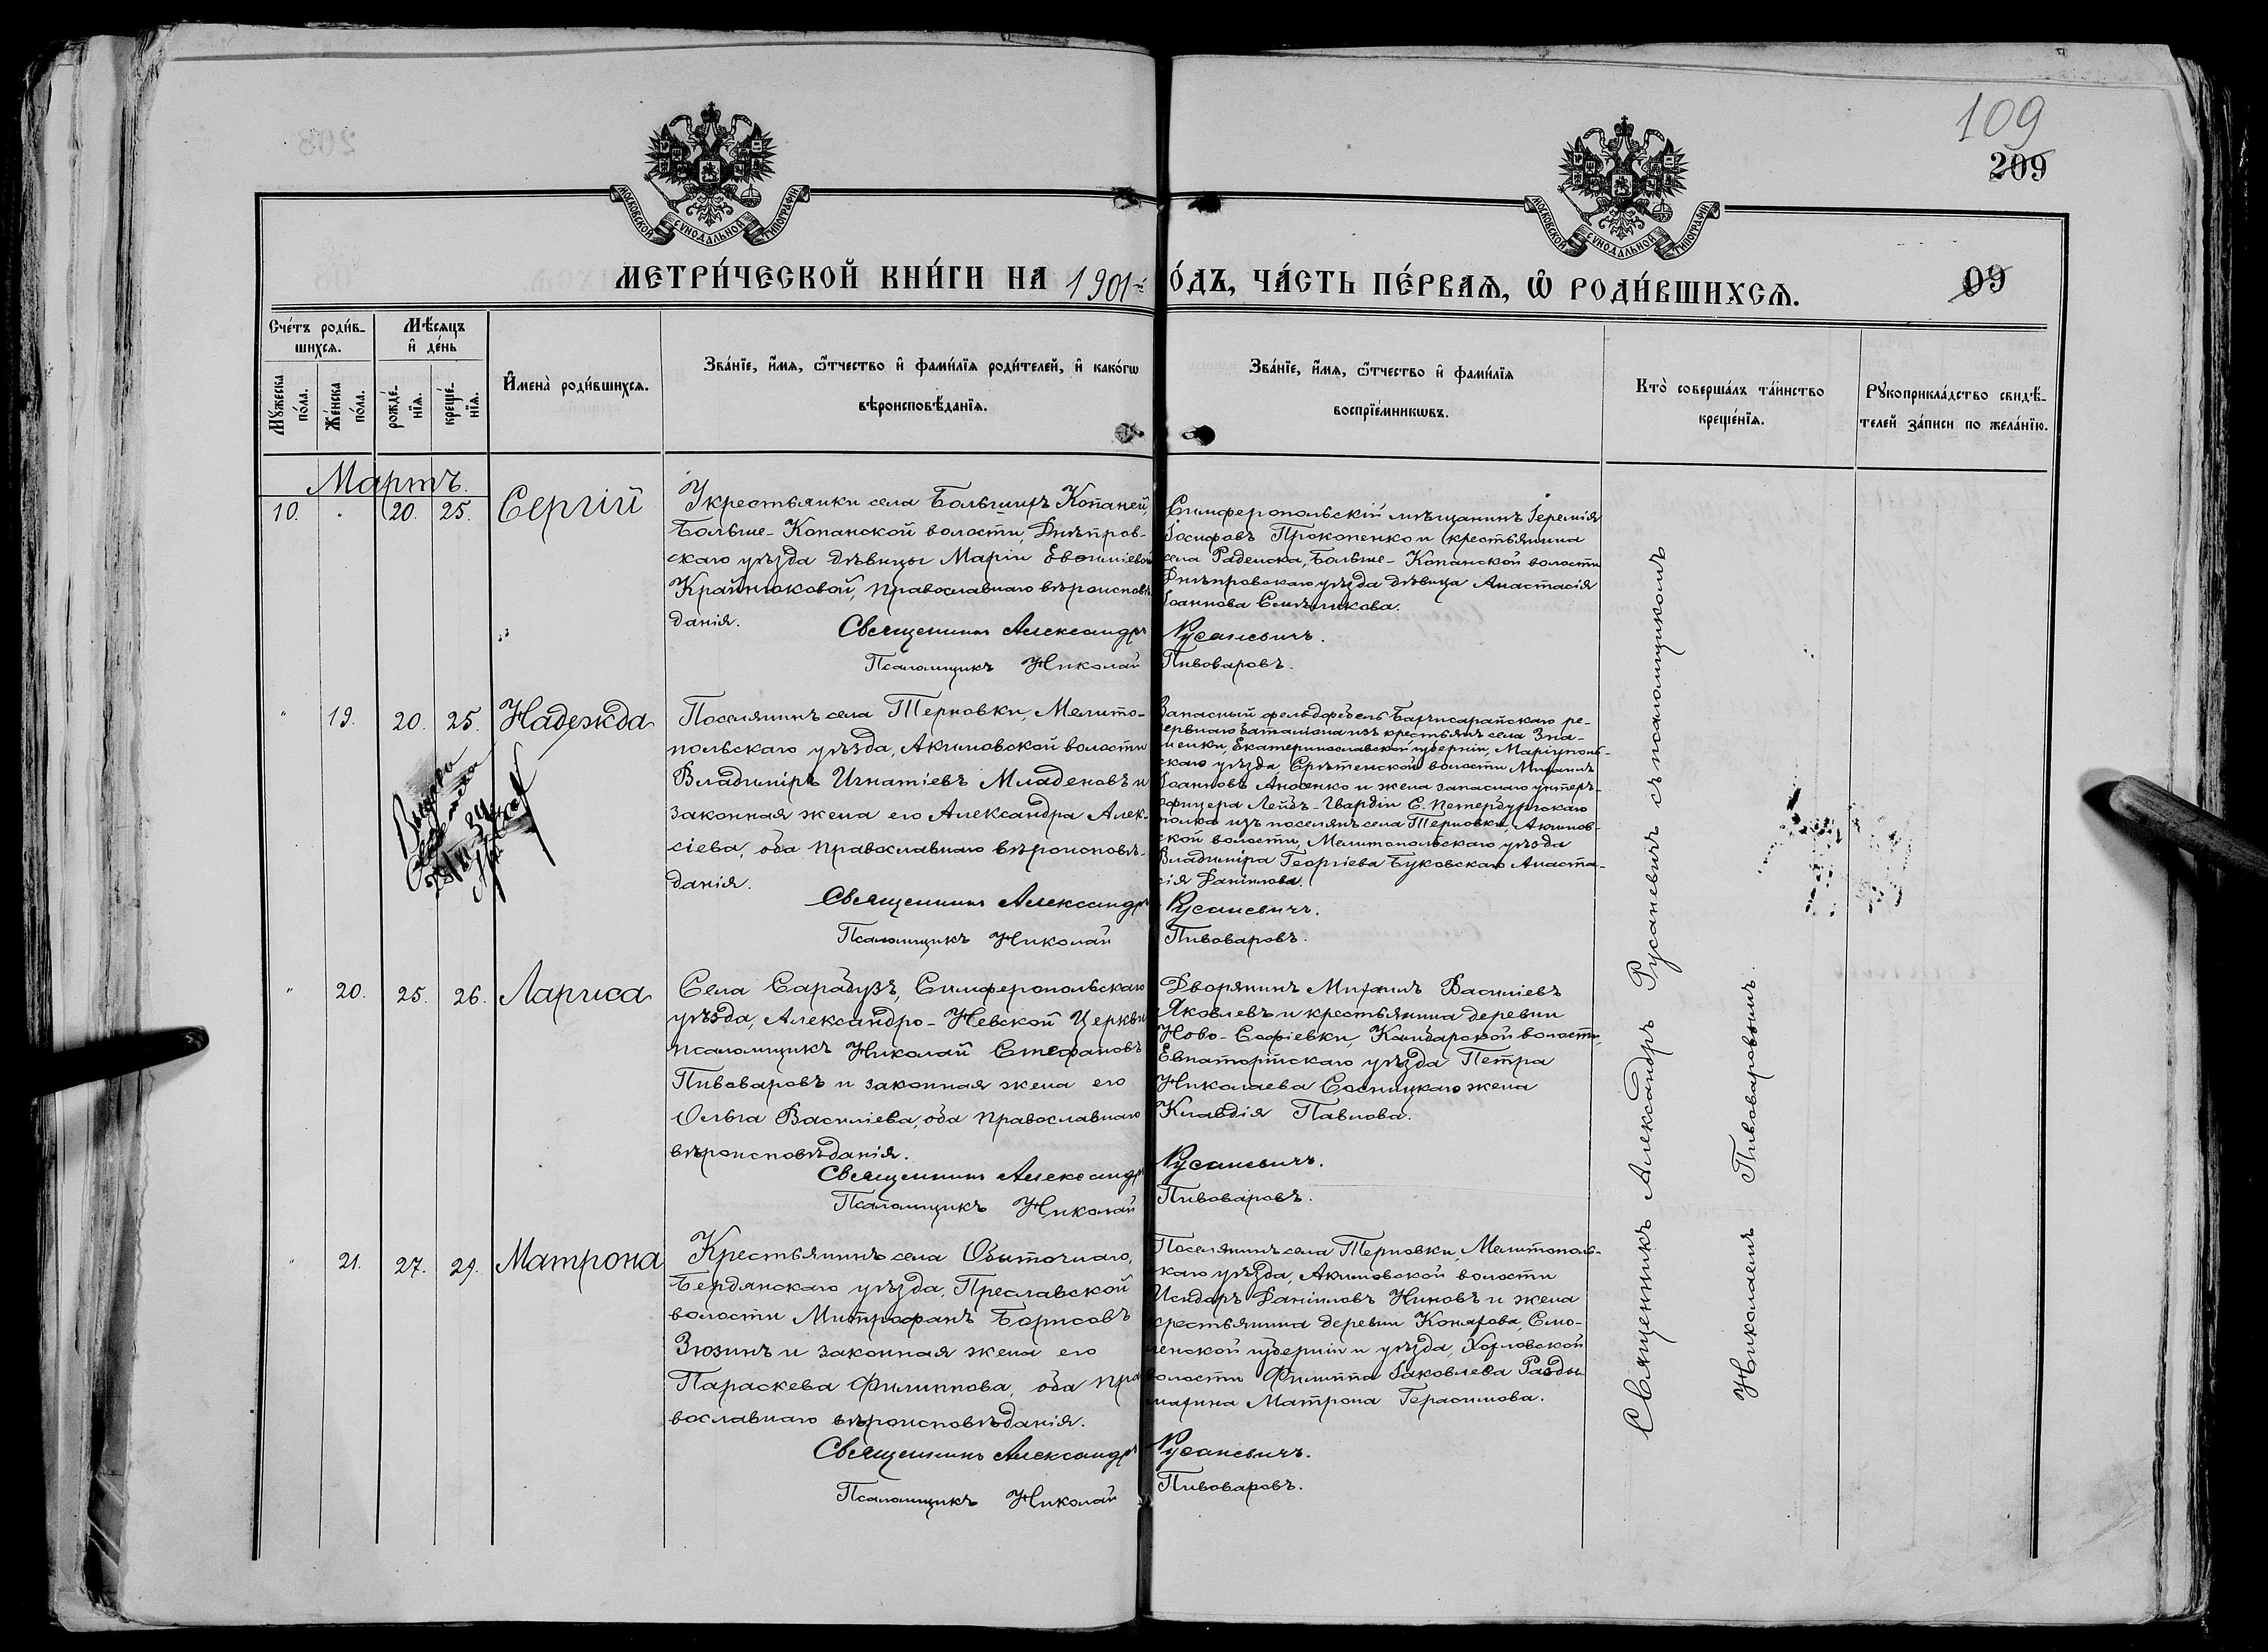 109
209
МОСКОВСКОЙ СѴНОДАЛЬНОЙ ТИПОГРАФІИ
МОСКОВСКОЙ СѴНОДАЛЬНОЙ ТИПОГРАФІИ
МЕТРИ́ЧЕСКОЙ КНИ́ГИ НА 1901-й
О́ДЪ, ЧА́СТЬ ПЕ́РВАѦ, Ѽ РОДИ́ВШИХСѦ.
09
Сче́тъ роди́в-
шихсѧ.
Мꙋ́жеска
по́ла.
Же́нска
по́ла.
Мѣ́сѧцъ
и҆ де́нь
рожде́-
нїѧ.
креще́-
нїѧ.
И҆мена̀ роди́вшихсѧ.
Зва́нїе, и҆́мѧ, ѻ҆́тчество и҆ фами́лїѧ роди́телей, и҆ како́гѡ
вѣроисповѣ́данїѧ.
Зва́нїе, и҆́мѧ, ѻ҆́тчество и҆ фами́лїѧ
воспрїе́мникѡвъ.
Кто̀ соверша́лъ та́инство
креще́нїѧ.
Рꙋкоприкла́дство свидѣ́-
телей за́писи по жела́нїю.
Мартъ.
10.
20.
25.
Сергій
У крестьянки села Большихъ Копаней,
Больше-Копанской волости, Днѣпров-
скаго уѣзда дѣвицы Маріи
Крайнюковой, православнаго вѣроисповѣ
данія.
Священникъ Александръ
Псаломщикъ Николай
Симферопольскій мѣщанинъ Іеремія
Іосифовъ Прокопенко и крестьянка
села Раденска, Больше-Копанской волости
Днѣпровскаго уѣзда дѣвица Анастасія
Іоаннова
Русаневичъ.
Пивоваровъ.
"
19.
20.
25.
Надежда
Поселянинъ села Терновки, Мелито-
польскаго уѣзда, Акимовской волости
Владиміръ Игнатіевъ Младеновъ и
законная жена его Александра Алек-
сіева, оба православнаго вѣроисповѣ-
данія.
Священникъ Александръ
Псаломщикъ Николай
Запасный фельдфебель Бахчисарайскаго ре-
зервнаго баталіона изъ крестьянъ села Зна-
менки, Екатеринославской губерніи, Маріуполь-
скаго уѣзда, Срѣтенской волости Михаилъ
Іоанновъ Аносенко и жена запаснаго унтеръ-
офицера Лейбъ-Гвардіи С. Петербургскаго
полка изъ поселянъ села Терновки, Акимов-
ской волости, Мелитопольскаго уѣзда
Владиміра Георгіева Буковскаго Анаста-
сія Даніилова.
Русаневичъ.
Пивоваровъ.
"
20.
25.
26.
Лариса
Села Сарабузъ, Симферопольскаго
уѣзда, Александро-Невской Церкви
псаломщикъ Николай Стефановъ
Пивоваровъ и законная жена его
Ольга Василіева, оба православнаго
вѣроисповѣданія.
Священникъ Александръ
Псаломщикъ Николай
Дворянинъ Михаилъ Василіевъ
Яковлевъ и крестьянина деревни
Ново-Софіевки, волости,
Евпаторійскаго уѣзда Петра
Николаева Сосницкаго жена
Клавдія Павлова.
Русаневичъ.
Пивоваровъ.
"
21.
27.
29.
Матрона
Крестьянинъ села Обиточнаго,
Бердянскаго уѣзда, Преславской
волости Митрофанъ Борисовъ
Зюзинъ и законная жена его
Параскева Филиппова, оба пра
вославнаго вѣроисповѣданія.
Священникъ Александръ
Псаломщикъ Николай
Поселянинъ села Терновки, Мелитополь-
скаго уѣзда, Акимовской волости
Исидоръ Даніиловъ Ниновъ и жена
крестьянина деревни Смо-
ленской губерніи и уѣзда, Хохловской
волости Филиппа Іаковлева
Матрона Герасимова.
Русаневичъ.
Пивоваровъ.
Священникъ Александръ Русаневичъ съ псаломщикомъ
Николаемъ Пивоваровымъ.